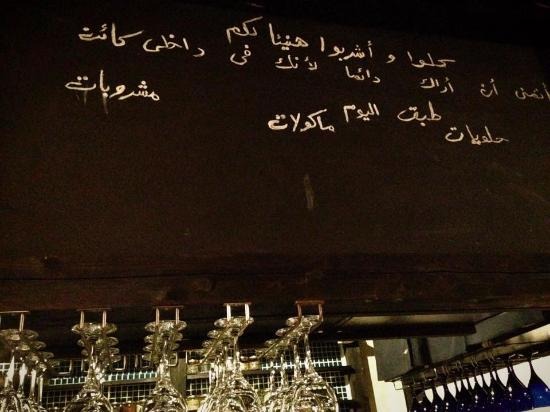 كلوا و أشربوا هنيئا لكم
أتمنى أن أراك دائما لأنك في داخلي كائنة
طبق اليوم
مأكولات
مشروبات
حلويات